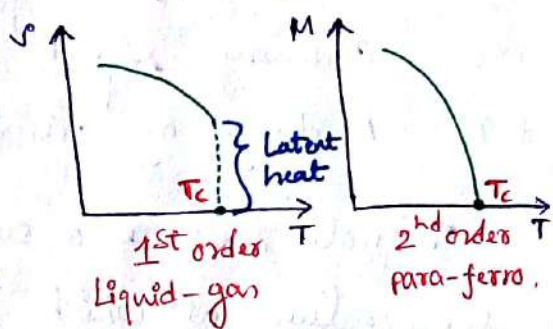 ρ
Latent
heat
Tc
T
1st order
Liquid-gas
M
Tc
T
2nd order
para-ferro.